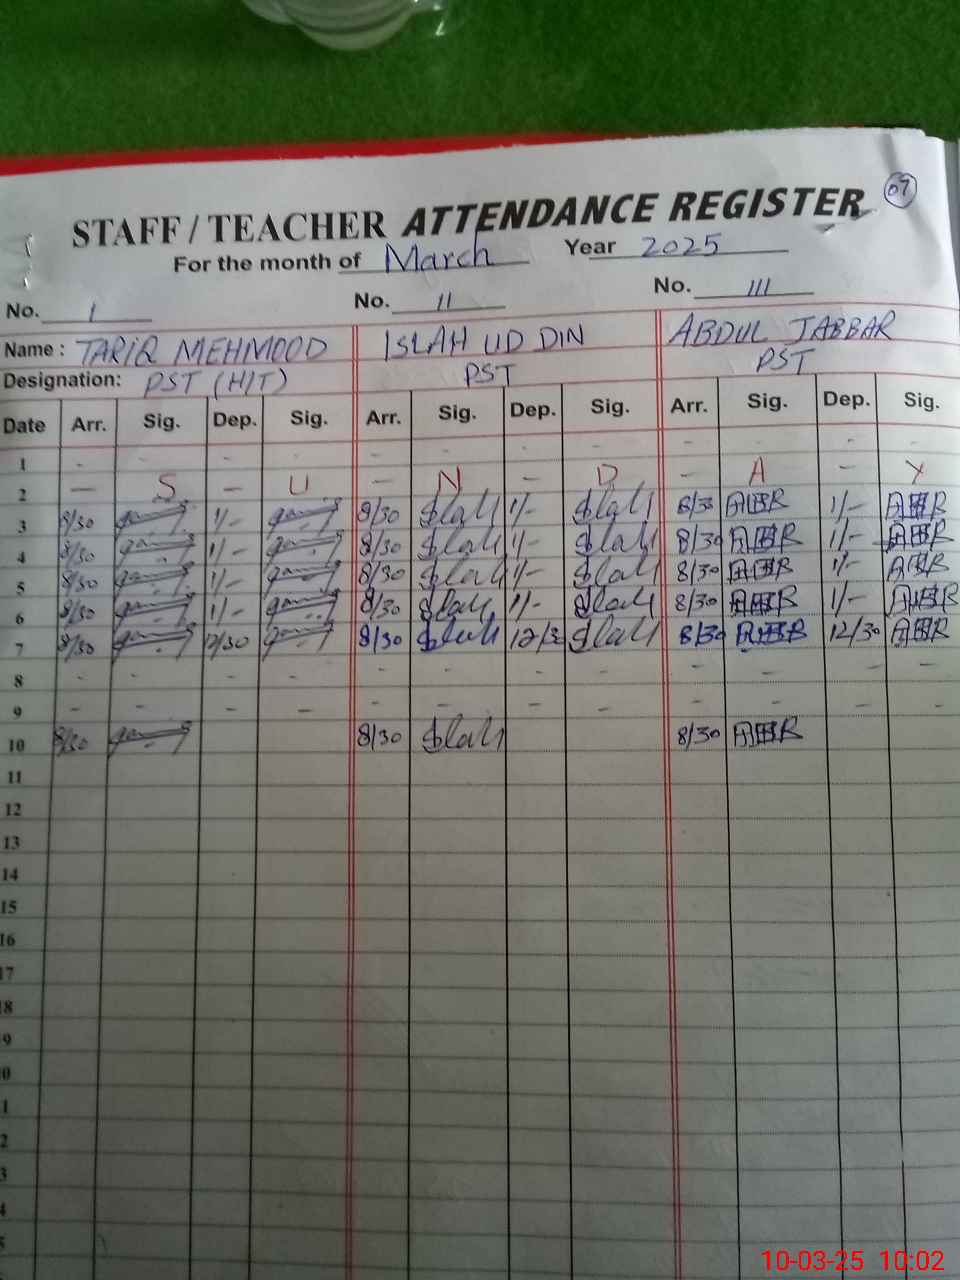 07
STAFF / TEACHER ATTENDANCE REGISTER
For the month of March Year 2025
No. I No. II No. III
Name : TARIQ MEHMOOD ISLAH UD DIN ABDUL JABBAR
Designation: PST (H/T) PST PST
Date Arr. Sig. Dep. Sig. Arr. Sig. Dep. Sig. Arr. Sig. Dep. Sig.
1 - - - - - - - - - - - -
2 — S — U — N — D — A — Y
3 8/30 1/- 8/30 Islah 1/- Islah 8/30 1/-
4 8/30 1/- 8/30 Islah 1/- Islah 8/30 1/-
5 8/30 1/- 8/30 Islah 1/- Islah 8/30 1/-
6 8/30 1/- 8/30 Islah 1/- Islah 8/30 1/-
7 8/30 12/30 8/30 Islah 12/30 Islah 8/30 12/30
8 - - - - - - - - - - - -
9 - - - - - - - - - - - -
10 8/30 8/30 Islah 8/30
11
12
13
14
15
16
17
18
9
0
1
2
3
4
5
10-03-25 10:02